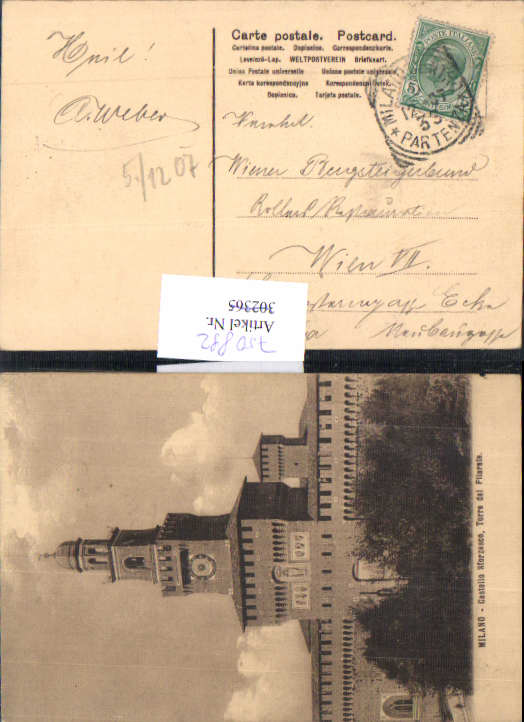 Carte postale. Postcard.
Cartolina postale. Dopisnice. Correspondenzkarte.
Levelező-Lap. WELTPOSTVEREIN Briefkaart.
Union Postale universelle Unione postale universale
Karta korespondencyjna Korespondenční lístek.
Dopisnica. Tarjeta postale.
POSTE ITALIANE
MILANO
PARTENZA
Heil!
A. Weber
5./12 07
Wiener Bergsteigerbund
Wien VII.
Ecke
Neubaugasse
302365
Artikel Nr.
750882
MILANO - Castello Sforzesco, Torre del Filarete.